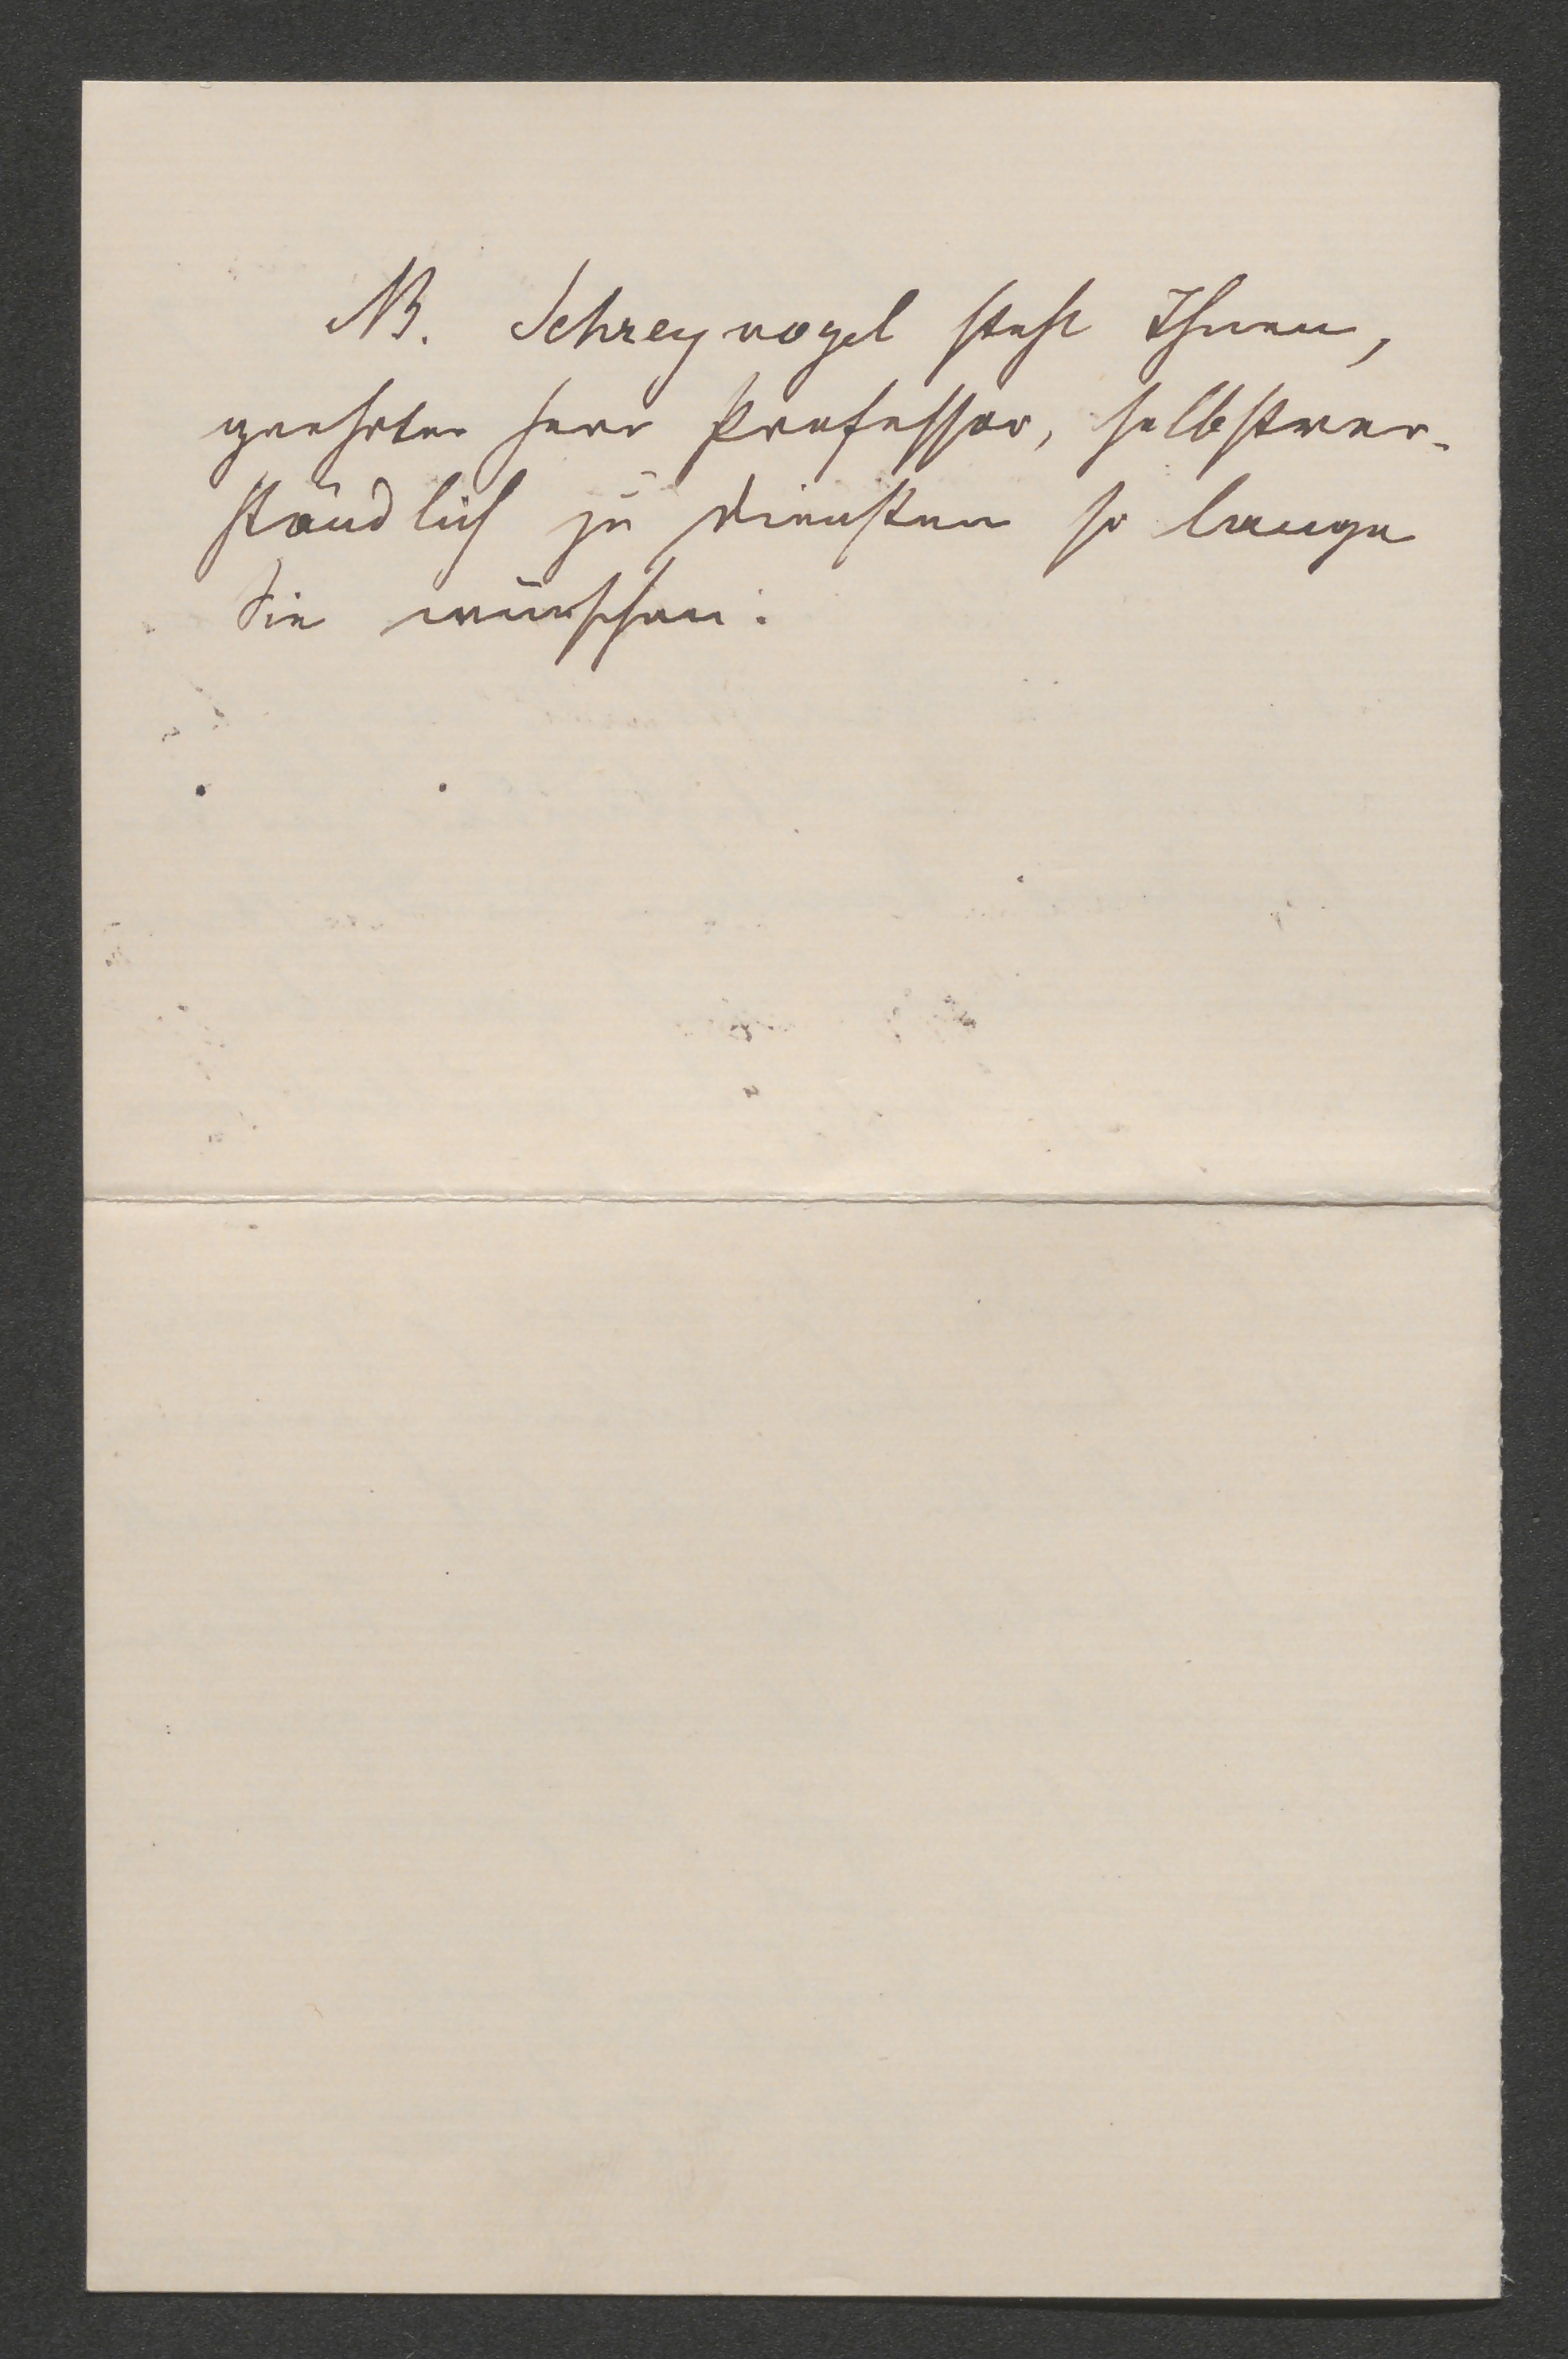 NB. Schreyvogel steht Ihnen,
geehrter Herr Professor, selbstver-
ständlich zu Diensten so lange
Sie wünschen.